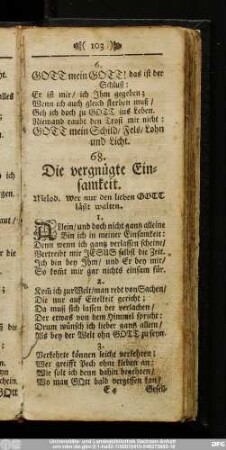 ( 103 )
6.
GOTT mein GOTT! das ist der
Schluß:
Er ist mir/ ich Ihm gegeben;
Wenn ich auch gleich sterben muß/
Geh ich doch zu GOTT ins Leben.
Niemand raubt den Trost mir nicht:
GOTT mein Schild/ Fels/ Lohn
und Licht.
68.
Die vergnügte Ein-
samkeit.
Melod. Wer nur den lieben GOTT
läßt walten.
1.
Allein/ und doch nicht gantz alleine
Bin ich in meiner Einsamkeit:
Denn wenn ich gantz verlassen scheine/
Vertreibt mir JESUS selbst die Zeit.
Ich bin bey Ihm/ und Er bey mir/
So kömt mir gar nichts einsam für.
2.
Kom̃ ich zur Welt/ man redt von Sachen/
Die nur auf Eitelkeit gericht;
Da muß sich lassen der verlachen/
Der etwas von dem Himmel spricht:
Drum wünsch ich lieber gantz allein/
Als bey der Welt ohn GOTT zu seyn.
3.
Verkehrte können leicht verkehren;
Wer greifft Pech ohne kleben an:
Wie solt ich denn dahin begehren/
Wo man GOtt bald vergessen kan/
E 4
Gesell-